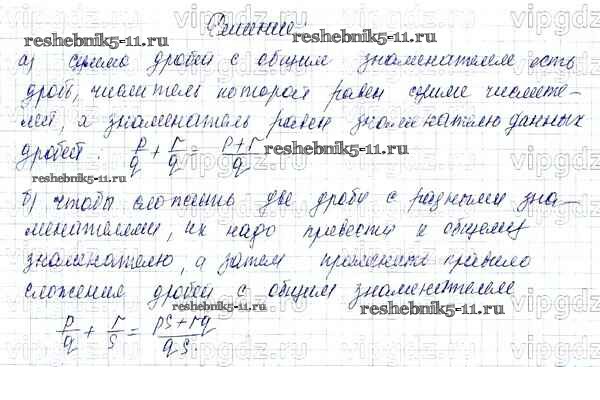 Решение
а) сумма дробей с общим знаменателем есть
дробь, числитель которой равен сумме числите-
лей, а знаменатель равен знаменателю данных
дробей: p/q + r/q = p+r/q
б) чтобы сложить две дроби с разными зна-
менателями, их надо привести к общему
знаменателю, а затем применить правило
сложения дробей с общим знаменателем
p/q + r/s = ps+rq/qs.
reshebnik5-11.ru
reshebnik5-11.ru
reshebnik5-11.ru
reshebnik5-11.ru
reshebnik5-11.ru
reshebnik5-11.ru
reshebnik5-11.ru
vipgdz.ru
vipgdz.ru
vipgdz.ru